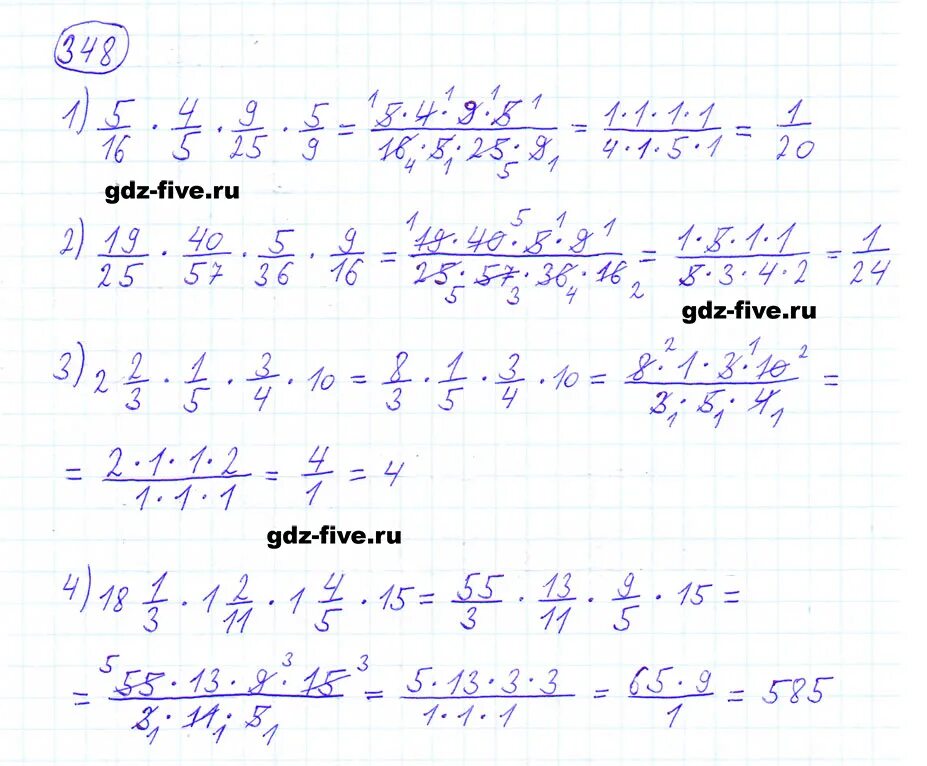 348
1) 5/16 · 4/5 · 9/25 · 5/9 = 5·4·9·5/16·5·25·9 = 1·1·1·1/4·1·5·1 = 1/20
gdz-five.ru
2) 19/25 · 40/57 · 5/36 · 9/16 = 19·40·5·9/25·57·36·16 = 1·5·1·1/5·3·4·2 = 1/24
gdz-five.ru
3) 2 2/3 · 1/5 · 3/4 · 10 = 8/3 · 1/5 · 3/4 · 10 = 8·1·3·10/3·5·4 =
= 2·1·1·2/1·1·1 = 4/1 = 4
gdz-five.ru
4) 18 1/3 · 1 2/11 · 1 4/5 · 15 = 55/3 · 13/11 · 9/5 · 15 =
= 55·13·9·15/3·11·5 = 5·13·3·3/1·1·1 = 65·9/1 = 585